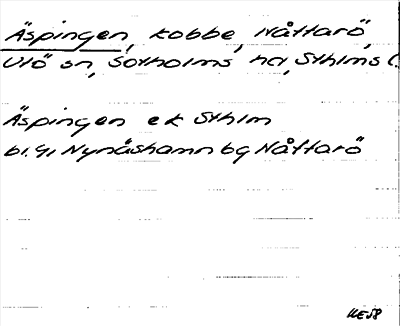 Äspingen, kobbe, Nåttarö
Utö sn, Sotholms hd, Sthlms l.
Äspingen ek Sthlm
bl. 9I Nynäshamn bg Nåttarö